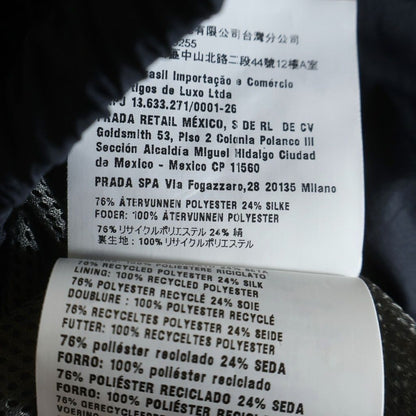 有限公司台灣分公司
3255
區中山北路二段44號12樓A室
Brasil Importação e Comércio
Artigos de Luxo Ltda
CNPJ 13.633.271/0001-26
PRADA RETAIL MÉXICO, S DE RL DE CV
Goldsmith 53, Piso 2 Colonia Polanco III
Sección Alcaldía Miguel Hidalgo Ciudad
de Mexico - Mexico CP 11560
PRADA SPA Via Fogazzaro,28 20135 Milano
76% ÅTERVUNNEN POLYESTER 24% SILKE
FODER: 100% ÅTERVUNNEN POLYESTER
76%リサイクルポリエステル 24% 絹
裏生地：100%リサイクルポリエステル
100% POLIESTERE RICICLATO
76% RECYCLED POLYESTER 24% SILK
LINING: 100% RECYCLED POLYESTER
76% POLYESTER RECYCLÉ 24% SOIE
DOUBLURE: 100% POLYESTER RECYCLÉ
76% RECYCELTES POLYESTER 24% SEIDE
FUTTER: 100% RECYCELTES POLYESTER
76% poliéster reciclado 24% SEDA
FORRO: 100% poliéster reciclado
76% POLIÉSTER RECICLADO 24% SEDA
FORRO: 100% POLIÉSTER RECICLADO
76% GERECYCLEERD
VOERING